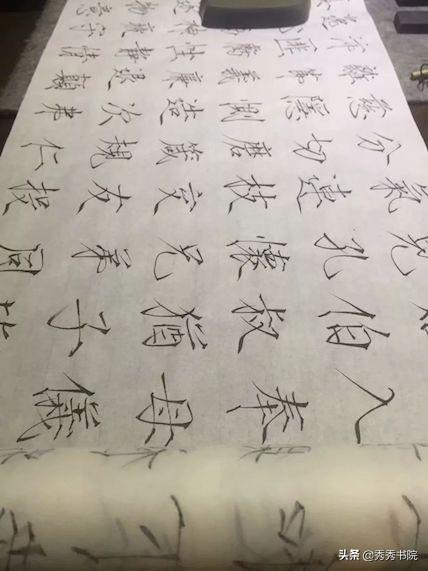 入奉母儀
姑伯叔猶子比
兒孔懷兄弟同
氣連枝交友投
分切磨箴規仁
慈隱惻造次弗
離節義廉退顛
沛匪虧性靜情
逸心動神疲守
逐物意
头条 @秀秀书院